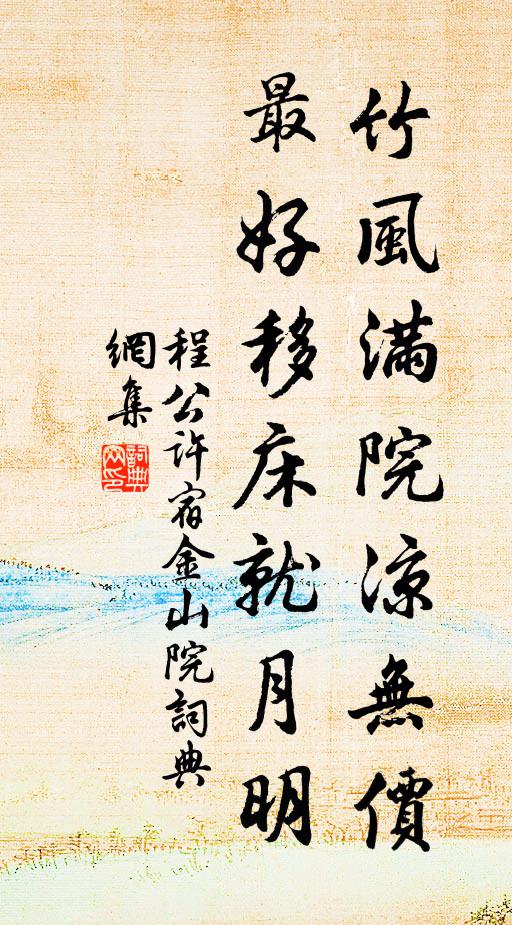 竹風滿院涼無價
最好移床就月明
程公許宿金山院詞典
網集
詞典
网印